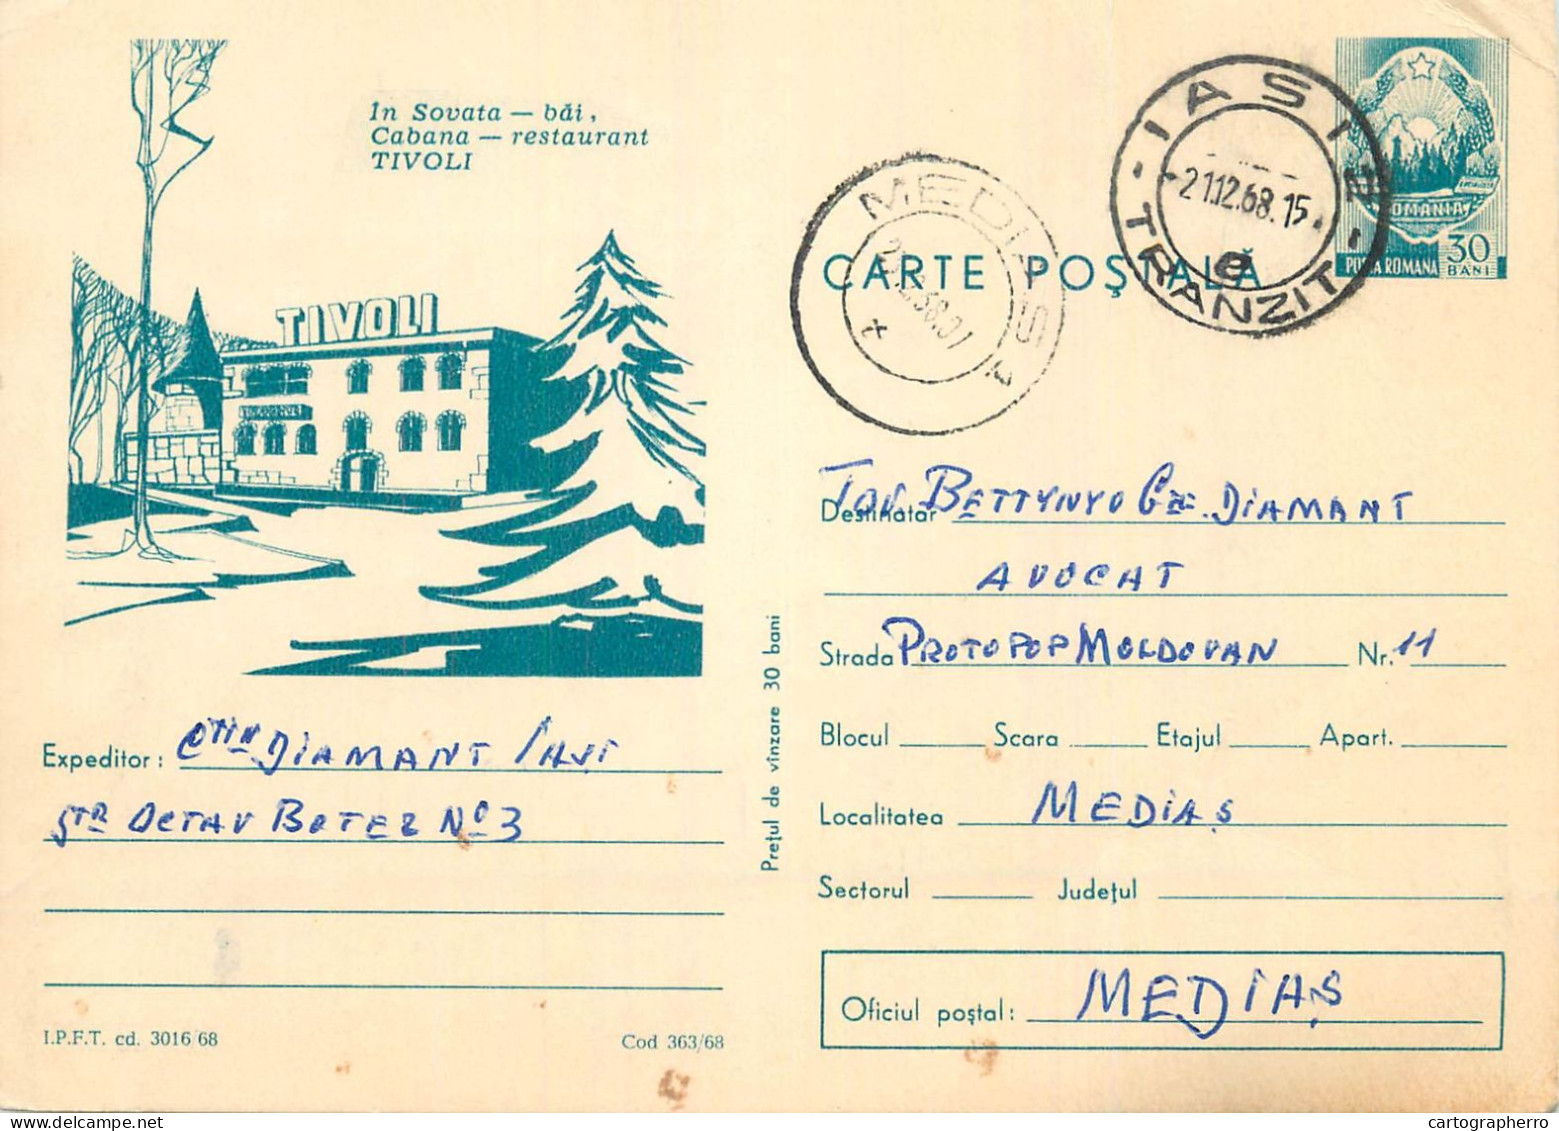 In Sovata — băi,
Cabana — restaurant
TIVOLI
TIVOLI
CARTE POȘTALĂ
IASI 2
21.12.68.15
TRANZIT
e
MEDIAS
ROMANIA
POSTA ROMANA
30
BANI
Destinatar Tov. BETTYNYU DIAMANT
AVOCAT
Strada PROTOPOP MOLDOVAN Nr. 11
Blocul Scara Etajul Apart.
Localitatea MEDIAȘ
Sectorul Județul
Oficiul poștal: MEDIAȘ
Prețul de vînzare 30 bani
Expeditor: CTIN DIAMANT IAȘI
STR OCTAV BOTEZ No 3
I.P.F.T. cd. 3016/68
Cod 363/68
cartographerro